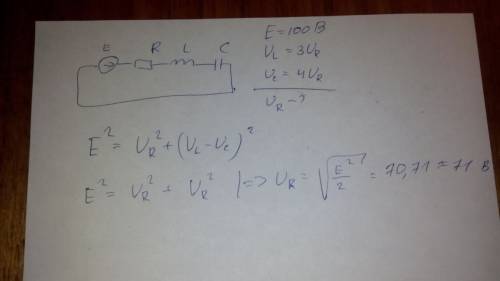 E R L C
E = 100 В
U_L = 3U_R
U_C = 4U_R
U_R - ?
E² = U_R² + (U_L - U_C)²
E² = U_R² + U_R² | => U_R = √(E²/2) = 70,71 ≈ 71 В